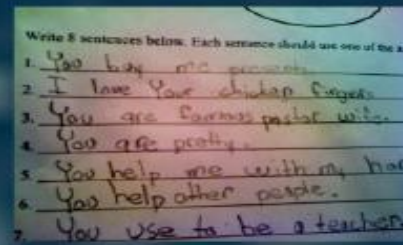 Write 8 sentences below. Each sentence should use one of the a
1. You buy me presents
2. I love your chicken fingers
3. You are famous pastor wife.
4. You are pretty.
5. You help me with my ho
6. You help other people.
7. You use to be a teacher